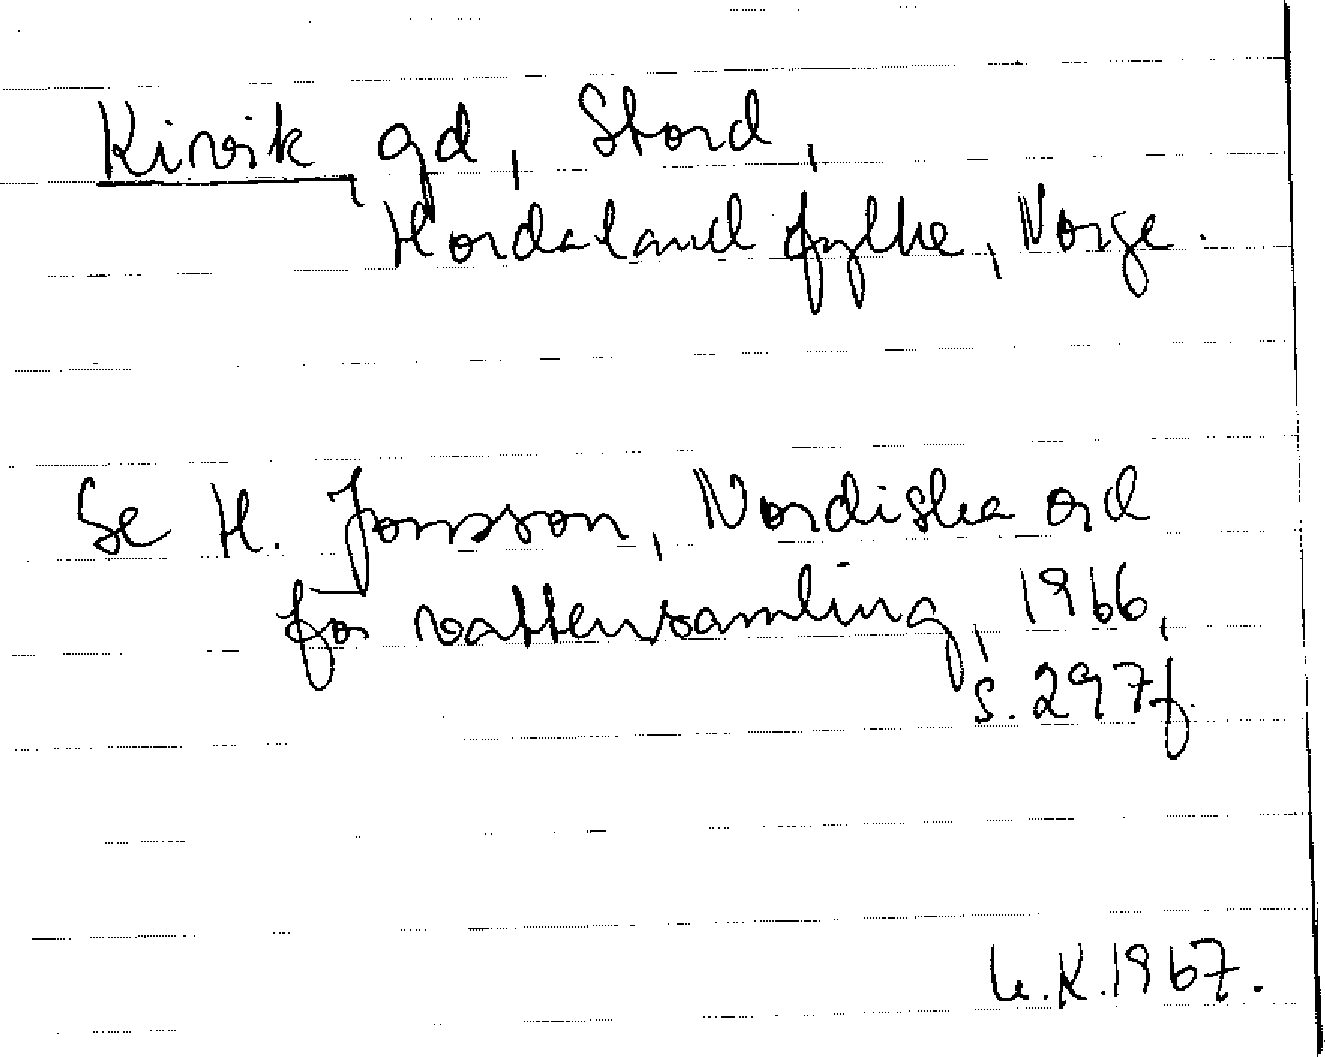 Kirvik, gd, Stord,
Hordaland fylke, Norge.
Se H. Jonsson, Nordiska ord
för vattensamling, 1966,
s. 297f.
K.1967.